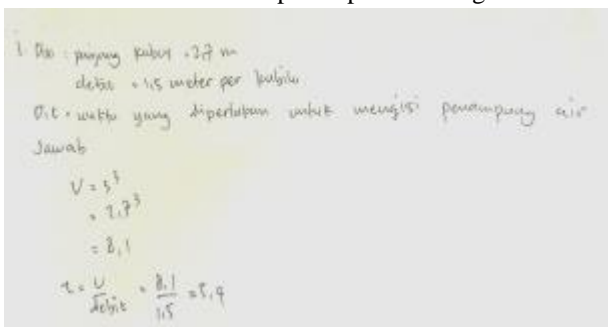 1. Dik : panjang kubus = 2,7 m
debit = 1,5 meter per kubik
Dit = waktu yang diperlukan untuk mengisi penampung air
Jawab
V = s³
= 2,7³
= 8,1
t = V/debit = 8,1/1,5 = 5,4